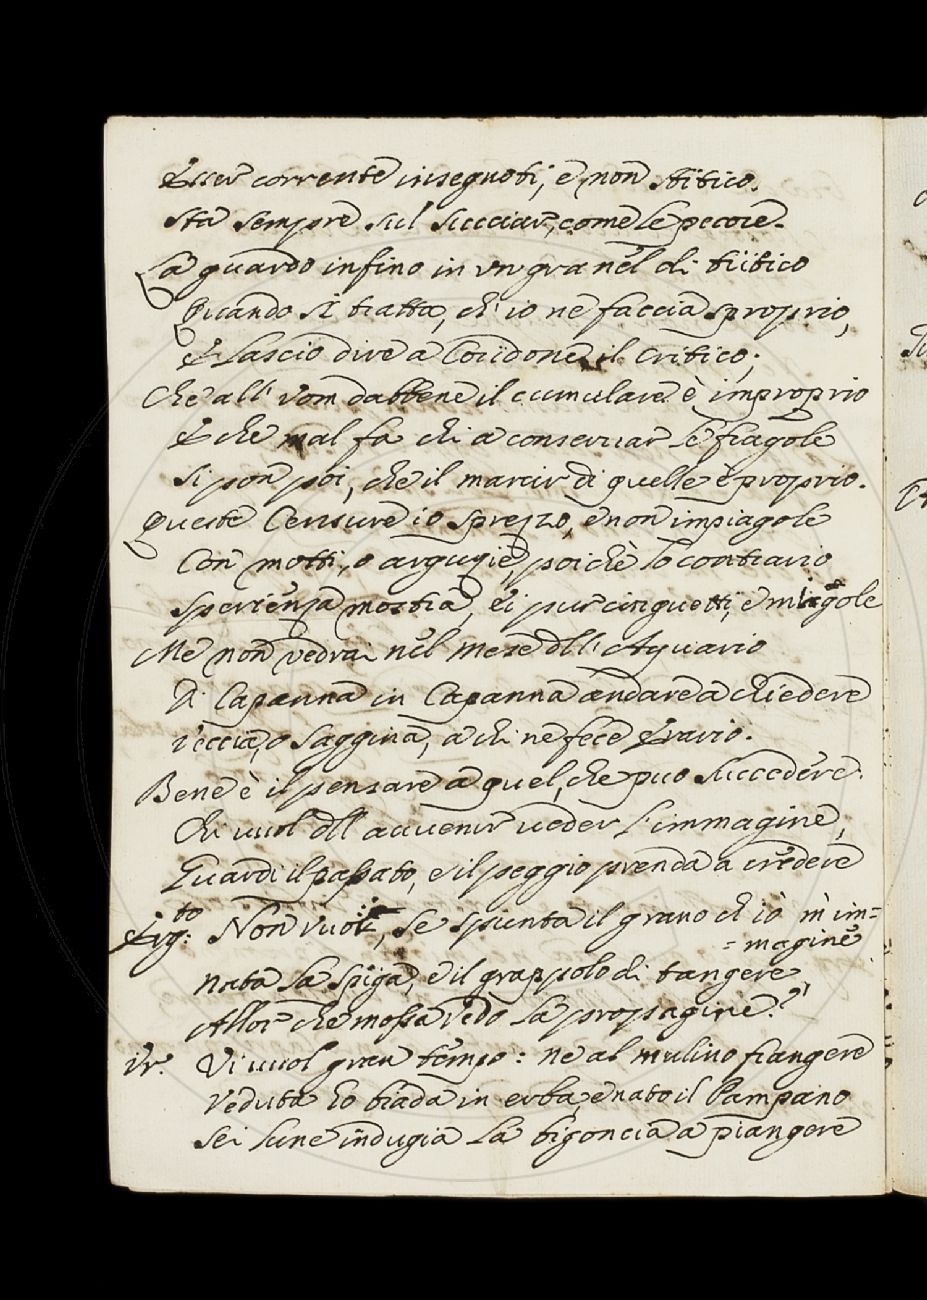 Esser corrente insegnoti, e non stitico.
Sta sempre sul succiar, come le pecore.
La guardo infino in un granel di tritico
Quando si tratta, ch' io ne faccia sproprio,
E lascio dire a Coridone il Critico;
Che all' uom dabbene il cumulare è improprio
E che mal fa chi a conservar le fragole
Si pon poi, che il marcir di quelle è proprio.
Queste Censure io sprezzo, e non impiagole
Con motti, o arguzie, poichè lo contrario
Sperienza mostra, ei pur cinguetti, e miagole
Me non vedrà nel mese dell' Aquario
Di Capanna in Capanna andare a chiedere
Veccia, o Saggina, a chi ne fece Erario.
Bene è il pensare a quel, che puo succedere.
Chi vuol dell avvenir veder l' immagine,
Guardi il passato, e il peggio prenda a credere
Erg:to Non vuoi, se spunta il grano ch io m' im=
=magine
nata la spiga, e il grappolo di tangere
Allor che mossa vedo la propagine?
Ur. Vi vuol gran tempo: ne al mulino frangere
Veduta ho biada in erba, e nato il Pampano
Sei lune indugia la bigoncia a piangere